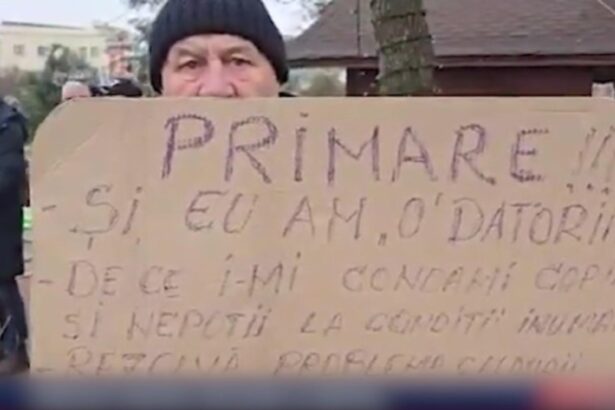 PRIMARE!!!
- ŞI EU AM „O'DATORII
- DE CE I-MI CONDAMI COP
SI NEPOTII LA CONDITII INUMA
- REZOLVĂ PROBLEMA